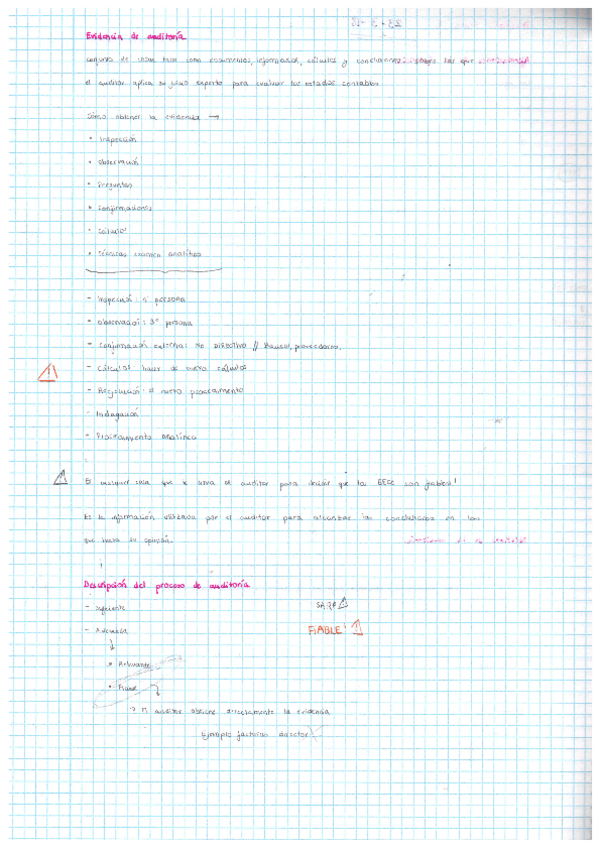 Evidencia de auditoría
conjunto de cosas tales como documentos, informados, cálculos y conclusiones las que
el auditor aplica su juicio experto para evaluar los estados contables
Cómo obtener la evidencia →
• Inspección
• Observación
• Preguntas
• Confirmaciones
• Cálculos
• Técnicas examen analítico
- Inspección: 1ª persona
- Observación: 3ª persona
- Confirmación externa: No DIRECTIVO // Bancos, proveedores.
- Cálculos hacer de nuevo cálculos
- nuevo procedimiento
- Indagación
- Procedimiento analítico
Es cualquier cosa que le sirva al auditor para decidir que las EECC son fiables!
Es la información utilizada por el auditor para alcanzar las conclusiones en las
que basa su opinión.
Descripción del proceso de auditoría
- Suficiente
- Adecuada
• Relevante
FIABLE!
• Fiable
→ El auditor obtiene directamente la evidencia
Ejemplo facturas director